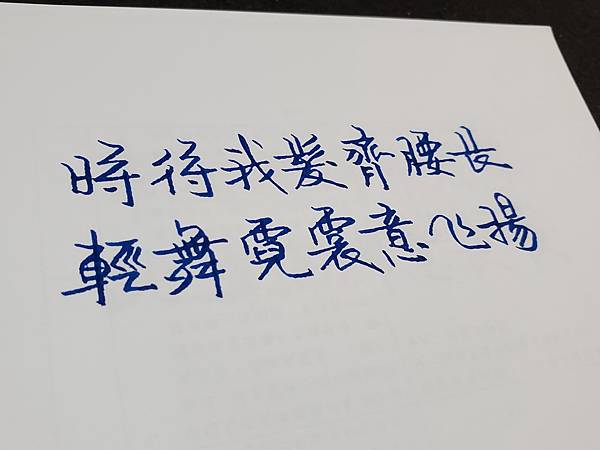 時待我髮齊腰長
輕舞霓裳意飞揚